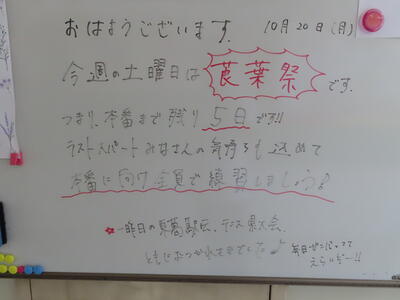 おはようございます. 10月20日(月)
今週の土曜日は 莨葉祭 です.
つまり、本番まで残り 5日 です!!
ラストスパート みなさんの気持ちも込めて
本番に向け全員で練習しましょう!
★一昨日の東葛駅伝、テニス県大会、
ともにおつかれさまでした♪ 毎日ガンバってて
えらいぞー!!